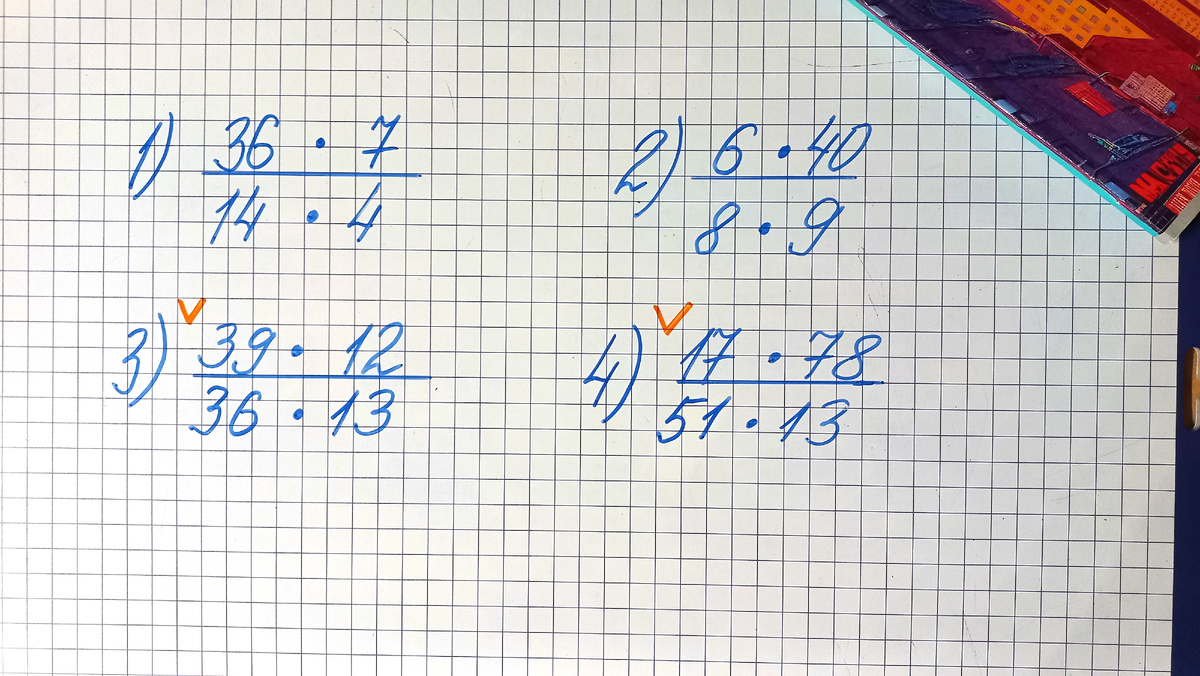 1) 36 · 7
14 · 4
2) 6 · 40
8 · 9
3) 39 · 12
36 · 13
4) 17 · 78
51 · 13